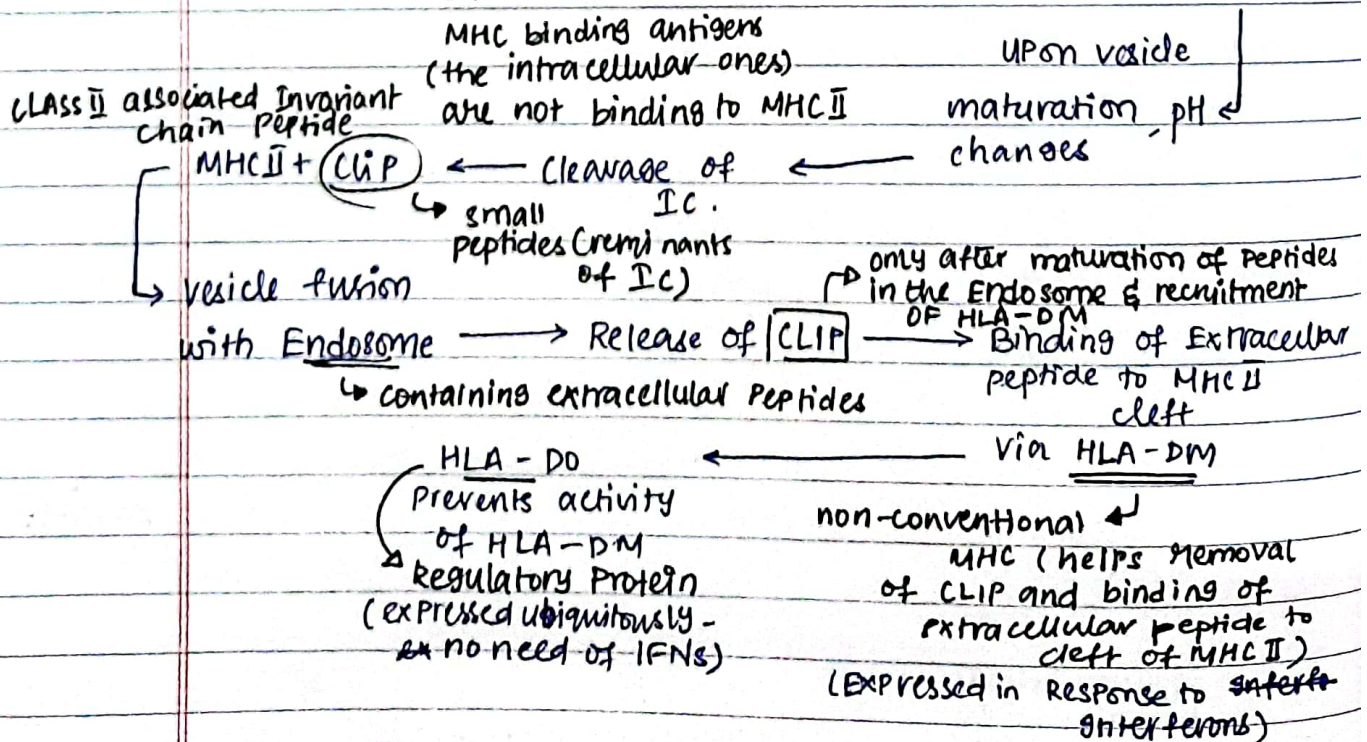 MHC binding antigens
(the intracellular ones)
are not binding to MHC II
upon vesicle
maturation, pH
changes
CLASS II associated Invariant
chain peptide
MHC II + CLIP ← Cleavage of
IC.
↳ small
peptides (reminants
of IC)
↳ vesicle fusion
with Endosome → Release of CLIP → Binding of Extracellar
peptide to MHC II
cleft
only after maturation of peptides
in the Endosome & recruitment
OF HLA-DM
↳ containing extracellular peptides
Via HLA-DM
HLA-DO
Prevents activity
of HLA-DM
Regulatory Protein
(expressed ubiquitously-
ex no need of IFNs)
non-conventional
MHC (helps removal
of CLIP and binding of
extracellular peptide to
cleft of MHC II)
(Expressed in Response to Interfe
Interferons)